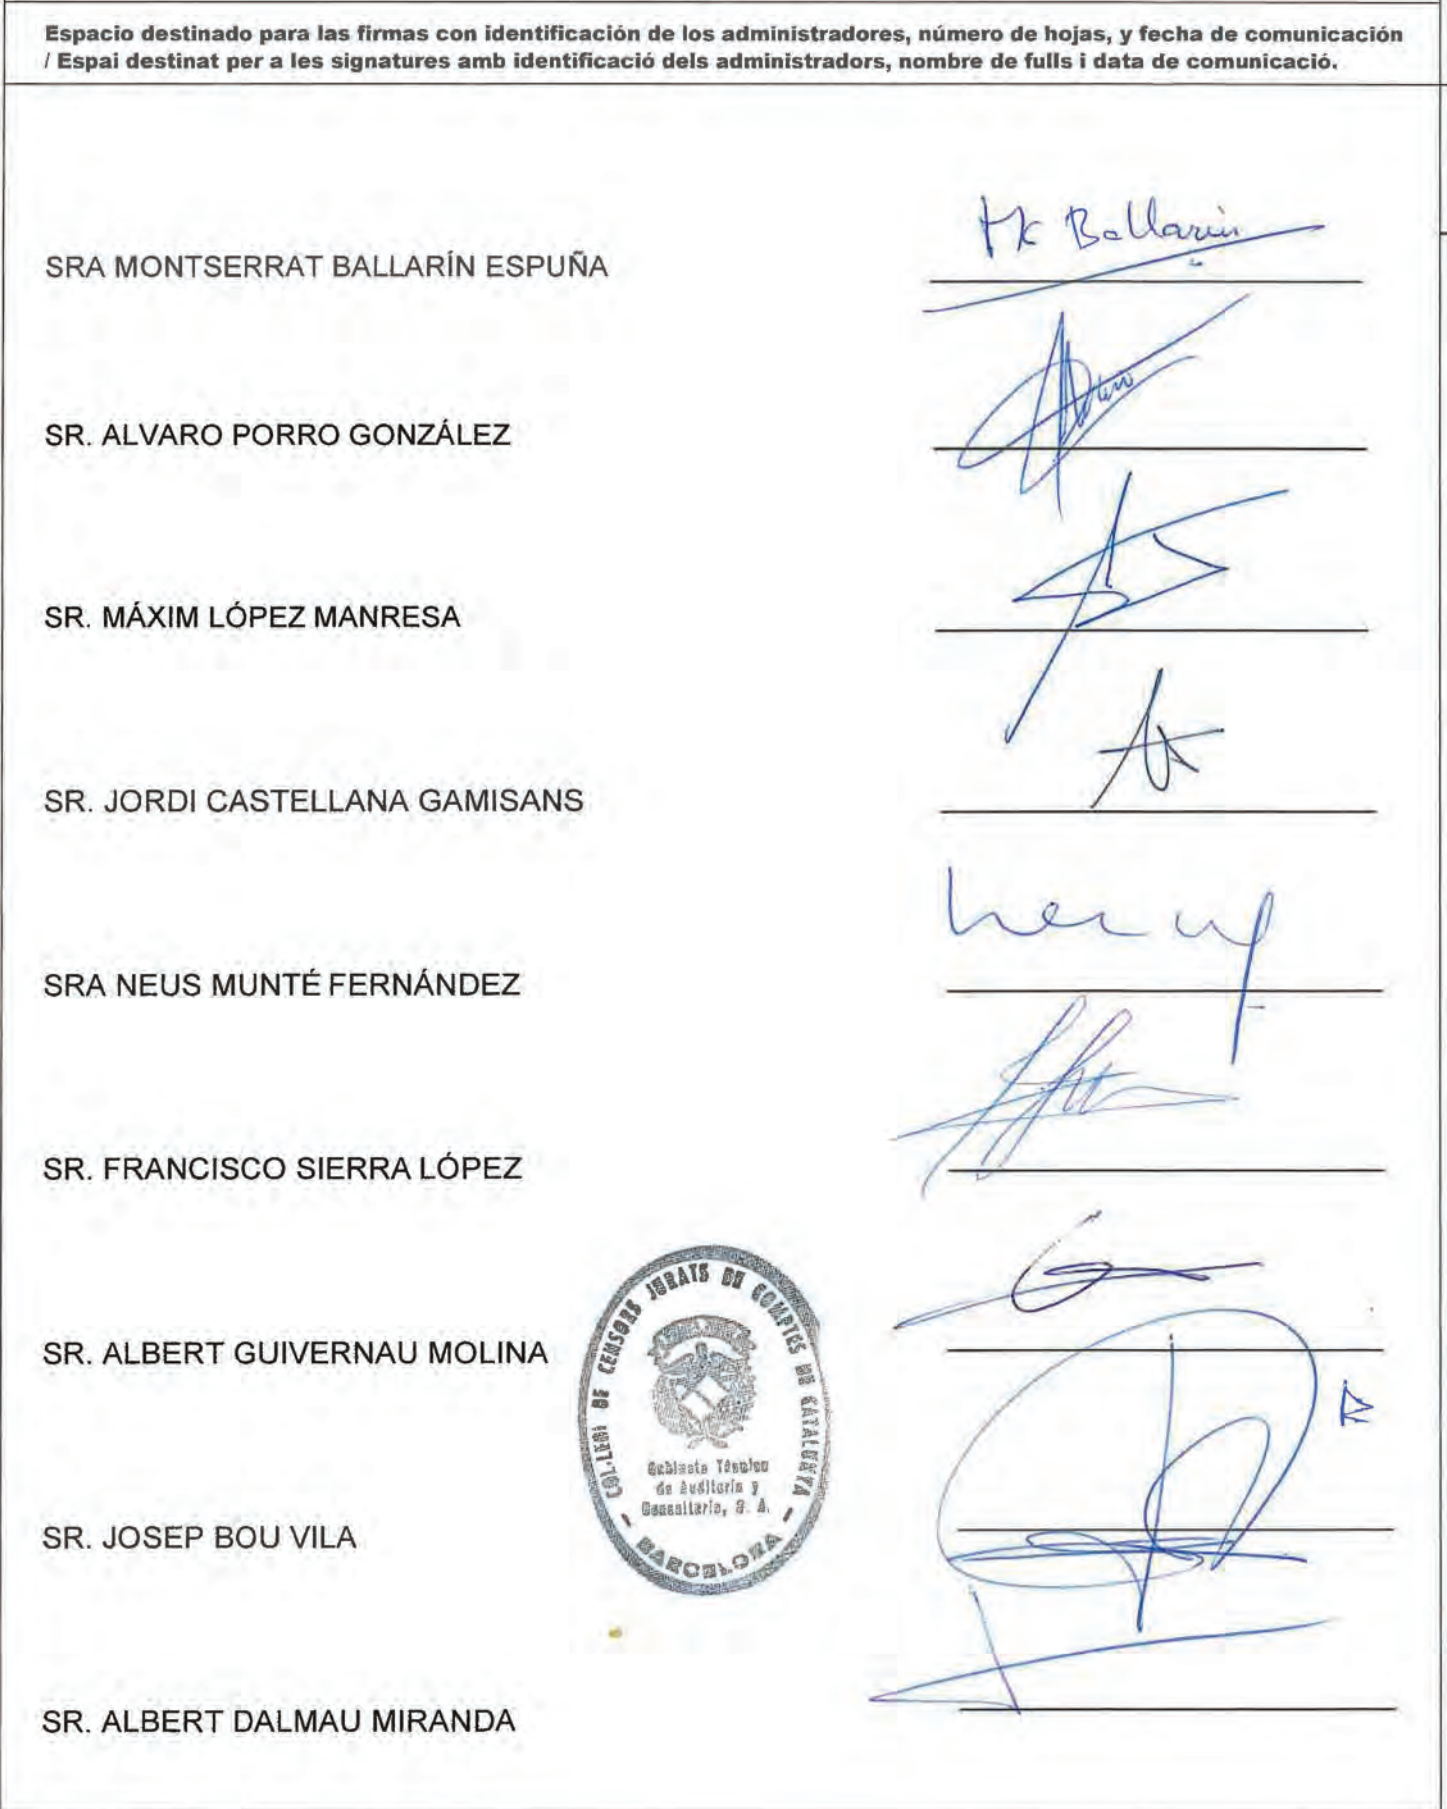 Espacio destinado para las firmas con identificación de los administradores, número de hojas, y fecha de comunicación
/ Espai destinat per a les signatures amb identificació dels administradors, nombre de fulls i data de comunicació.
Ballarín
SRA MONTSERRAT BALLARÍN ESPUÑA
SR. ALVARO PORRO GONZÁLEZ
SR. MÁXIM LÓPEZ MANRESA
SR. JORDI CASTELLANA GAMISANS
SRA NEUS MUNTÉ FERNÁNDEZ
SR. FRANCISCO SIERRA LÓPEZ
SR. ALBERT GUIVERNAU MOLINA
COL·LEGI DE CENSORS JURATS DE COMPTES DE CATALUNYA
Gabinete Técnico
de Auditoría y
Consultoría, S. A.
- BARCELONA -
SR. JOSEP BOU VILA
SR. ALBERT DALMAU MIRANDA